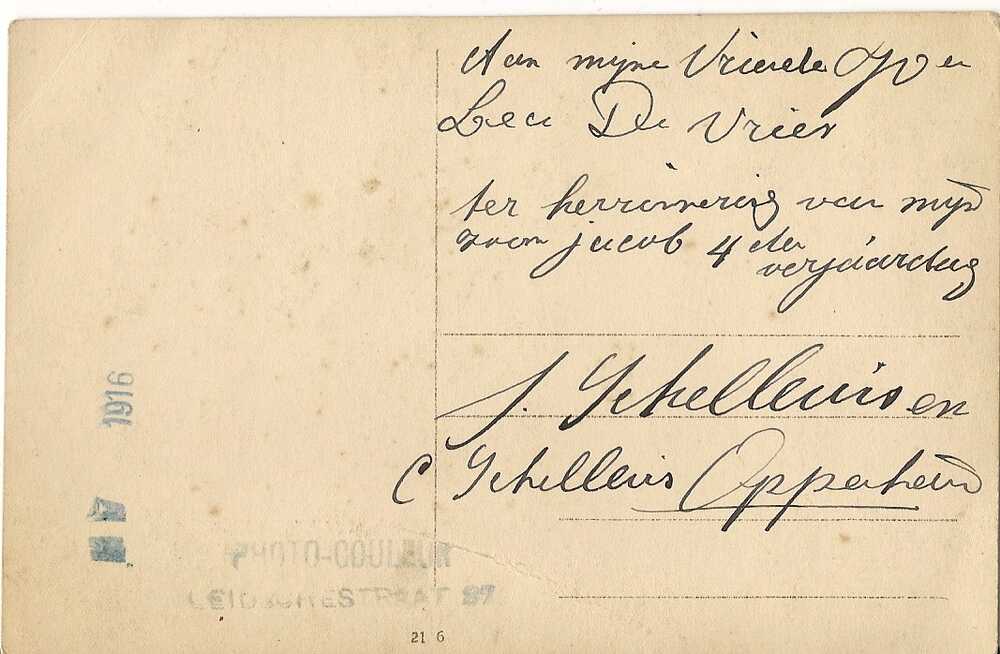 Aan mijne Vriende Jo en
Lea De Vries
ter herrinnering van mijn
zoon jacob 4 de
verjaardag
J. Schellevis en
C Schellevis Oppenheim
1916
PHOTO-COULEUR
LEIDSCHESTRAAT 87
21 6